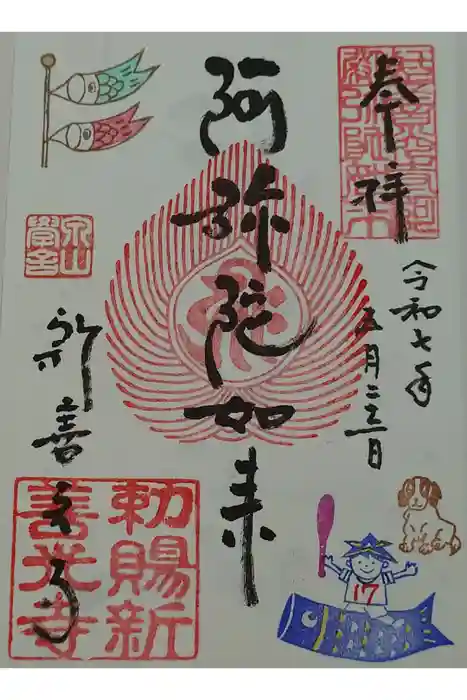 奉拝
令和七年
五月二十三日
阿弥陀如来
新善光寺
勅賜新
善光寺
17